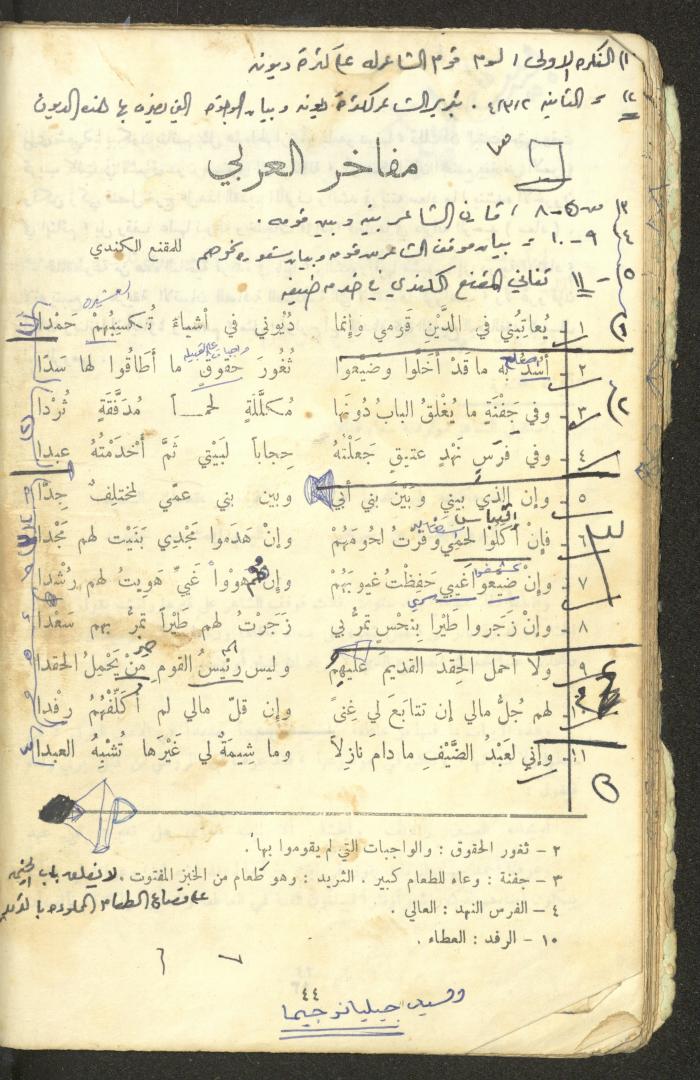 ١) الفكرة الاولى / لوم قوم الشاعر له على كثرة ديونه
٢) = الثانية ٤/٣/٢ . تبرير الشاعر لكثرة ديونه وبيان الوجوه التي يصرف بها هذه الديون
مفاخر العربي
٣) ٥-٨ / الشاعر بينه وبين قومه .
٤ ٩-١٠ = بيان موقف الشاعر من قومه وبيان شعوره نحوهم
للمقنع الكندي
٥ - ١١ تفاني المقنع الكندي في خدمة ضيفه
١ - يُعاتِبُني في الدَّينِ قَومي وإنما دُيُوني في أشياءَ تُكسِبُهُمْ حَمْدا
٢ - أسُدُّ به ما قَدْ أخَلّوا وضيعوا ثُغُورَ حقوقٍ ما أطَاقُوا لها سَدّا
٣ - وفي جَفْنَةٍ ما يُغْلَقُ البابُ دُونَها مُكلَّلَةٍ لحمـاً مُدَفَّقَةٍ ثُرْدا
٤ - وفي فَرَسٍ نَهْدٍ عتيقٍ جَعَلْتُهُ حِجاباً لبَيْتي ثَمَّ أخْدَمْتُهُ عبدا
٥ - وإن الذي بيني وبَيْنَ بني أبي وبين بني عمّي لمختلِفٌ جِدّا
٦ - فإنْ أكَلُوا لَحمي وفَرْتُ لحُومَهُمْ وإنْ هدَمُوا مَجْدي بَنَيْت لهم مَجْدا
٧ - وإنْ ضيّعوا غَيبي حَفِظْتُ غيوبَهُمْ وإن هُمْ هووْا غَيّ هَوِيتُ لهم رُشْدا
٨ - وإنْ زَجَروا طَيْرا بِنحْسٍ تمرُّ بي زَجَرْتُ لهم طَيْراً تمرُّ بهم سَعْدا
٩ - ولا أحمل الحِقدَ القديم عَلَيهِمُ وليس رئيسُ القومِ مَنْ يَحْمِلُ الحقدا
١٠ - لهم جُلُّ مالي إن تتابَعَ لي غِنىً وإن قلّ مالي لم أكَلِّفْهُمُ رِفْدا
١١ - وإني لعَبْدُ الضَّيْفِ ما دامَ نازِلاً وما شِيمَةٌ لي غَيْرَها تُشْبِهُ العبدا
٢ - ثغور الحقوق : والواجبات التي لم يقوموا بها .
٣ - جفنة : وعاء للطعام كبير . الثريد : وهو كطعام من الخبز المفتوت .
٤ - الفرس النهد : العالي .
١٠ - الرفد : العطاء .
٤٤